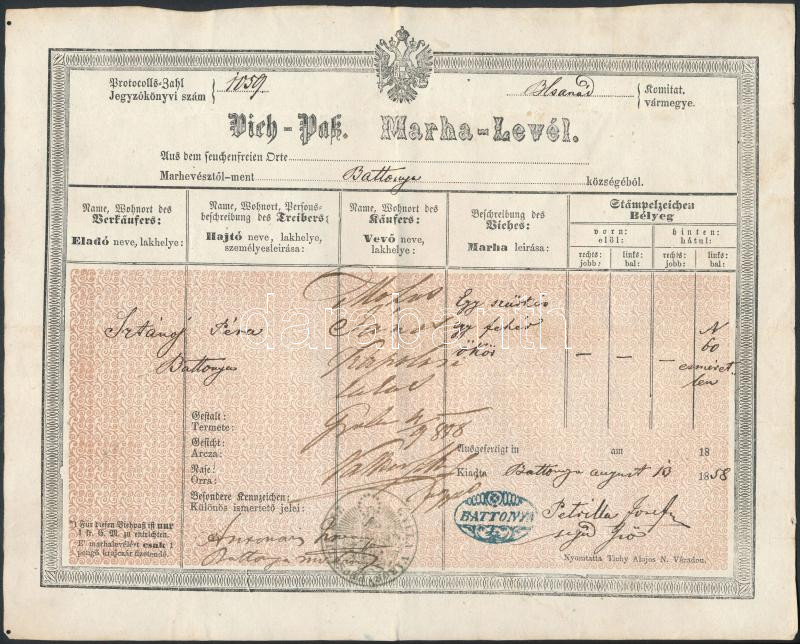 Protocolls-Zahl
Jegyzőkönyvi szám 1059.
Csanád Komitat.
vármegye.
Vieh-Paß. Marha-Levél.
Aus dem seuchenfreien Orte
Marhevésztől-ment Battonya községéből.
Name, Wohnort des
Verkäufers:
Eladó neve, lakhelye:
Name, Wohnort, Persons-
beschreibung des Treibers:
Hajtó neve, lakhelye,
személyesleirása:
Name, Wohnort des
Käufers:
Vevő neve,
lakhelye:
Beschreibung des
Viehes:
Marha leirása:
Stämpelzeichen
Bélyeg
vorn:
elöl:
hinten:
hátul:
rechts:
jobb:
links-
bal:
rechts:
jobb:
links-
bal:
Egy szürkés
egy fehér
ökör
— — —
N
60
esméret-
len
Péra
Battonya
János
Gestalt:
Termete:
Gesicht:
Arcza:
Nase:
Orra:
Besondere Kennzeichen:
Különös ismertető jelei:
Ausgefertigt in am 18
Kiadta Battonya august 13 1858
BATTONYA
Petrilla József
Battonya
*) Für diesen Viehpaß ist nur
1 kr. C. M. zu entrichten.
E' marhalevélért csak 1
pengő krajczár fizetendő.
Nyomtatta Tichy Alajos N. Váradon.
darabanth